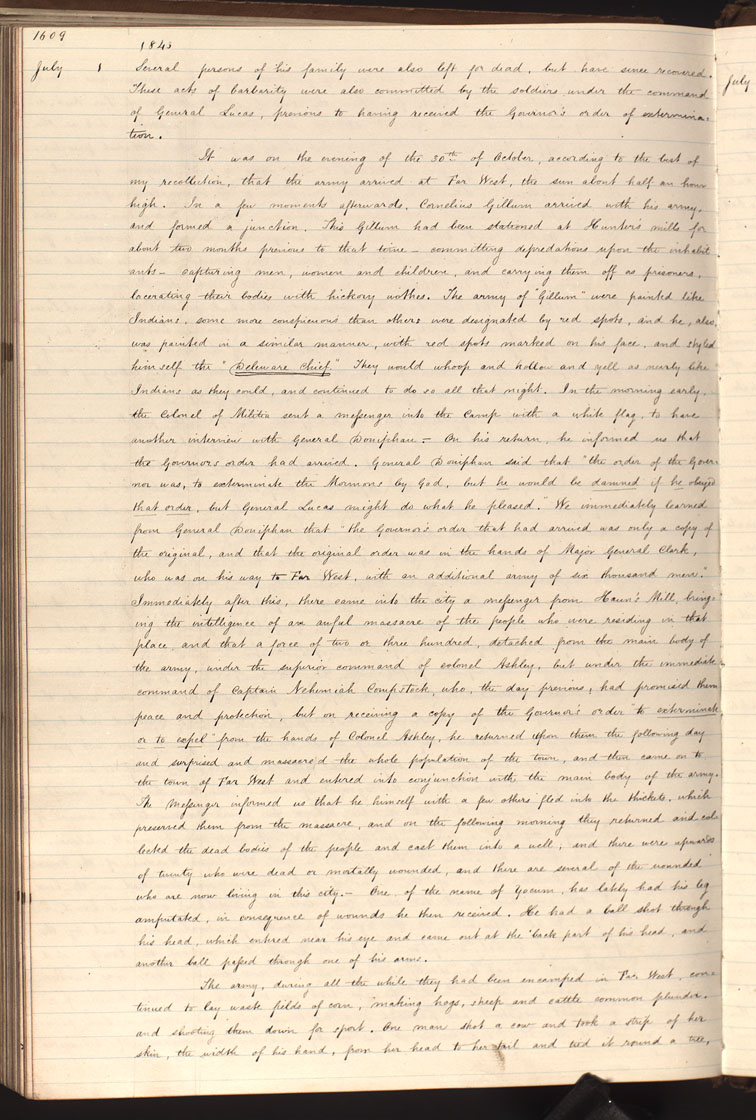 1609
1843
July 1 Several persons of his family were also left for dead, but have since recovered.
These acts of barbarity were also committed by the soldiers under the command
of General Lucas, previous to having received the Governor's order of extermina=
tion.
It was on the evening of the 30th of October, according to the best of
my recollection, that the army arrived at Far West, the sun about half an hour
high. In a few moments afterwards, Cornelius Gillum arrived with his army,
and formed a junction. This Gillum had been stationed at Hunter's mills for
about two months previous to that time – committing depredations upon the inhabit
ants – capturing men, women and children, and carrying them off as prisoners,
lacerating their bodies with hickory withes. The army of "Gillum" were painted like
Indians, some more conspicuous than others were designated by red spots, and he, also,
was painted in a similar manner, with red spots marked on his face, and styled
himself the "Deleware Chief." They would whoop and hollow and yell as nearly like
Indians as they could, and continued to do so all that night. In the morning early,
the Colonel of Militia sent a messenger into the Camp with a white flag, to have
another interview with General Doniphan. – On his return, he informed us that
the Governor's order had arrived. General Doniphan said that "the order of the Gover-
nor was, to exterminate the Mormons by God, but he would be damned if he obeyed
that order, but General Lucas might do what he pleased." We immediately learned
from General Doniphan that "the Governor's order that had arrived was only a copy of
the original, and that the original order was in the hands of Major General Clark,
who was on his way to Far West, with an additional army of six thousand men."
Immediately after this, there came into the city a messenger from Haun's Mill, bring-
ing the intelligence of an awful massacre of the people who were residing in that
place, and that a force of two or three hundred, detached from the main body of
the army, under the superior command of colonel Ashley, but under the immediate
command of Captain Nehemiah Compstock, who, the day previous, had promised them
peace and protection, but on receiving a copy of the Governor's order "to exterminate
or to expel" from the hands of Colonel Ashley, he returned upon them the following day
and surprised and massacre'd the whole population of the town, and then came on to
the town of Far West and entered into conjunction with the main body of the army.
The Messenger informed us that he himself with a few others fled into the thickets, which
preserved them from the massacre, and on the following morning they returned and col-
lected the dead bodies of the people and cast them into a well; and there were upwards
of twenty who were dead or mortally wounded, and there are several of the wounded
who are now living in this city. – One, of the name of Yocum, has lately had his leg
amputated, in consequence of wounds he then received. He had a ball shot through
his head, which entered near his eye and came out at the back part of his head, and
another ball passed through one of his arms.
The army, during all the while they had been encamped in Far West, con-
tinued to lay waste fields of corn, making hogs, sheep and cattle common plunder,
and shooting them down for sport. One man shot a cow and took a strip of her
skin, the width of his hand, from her head to her tail and tied it round a tree,
July